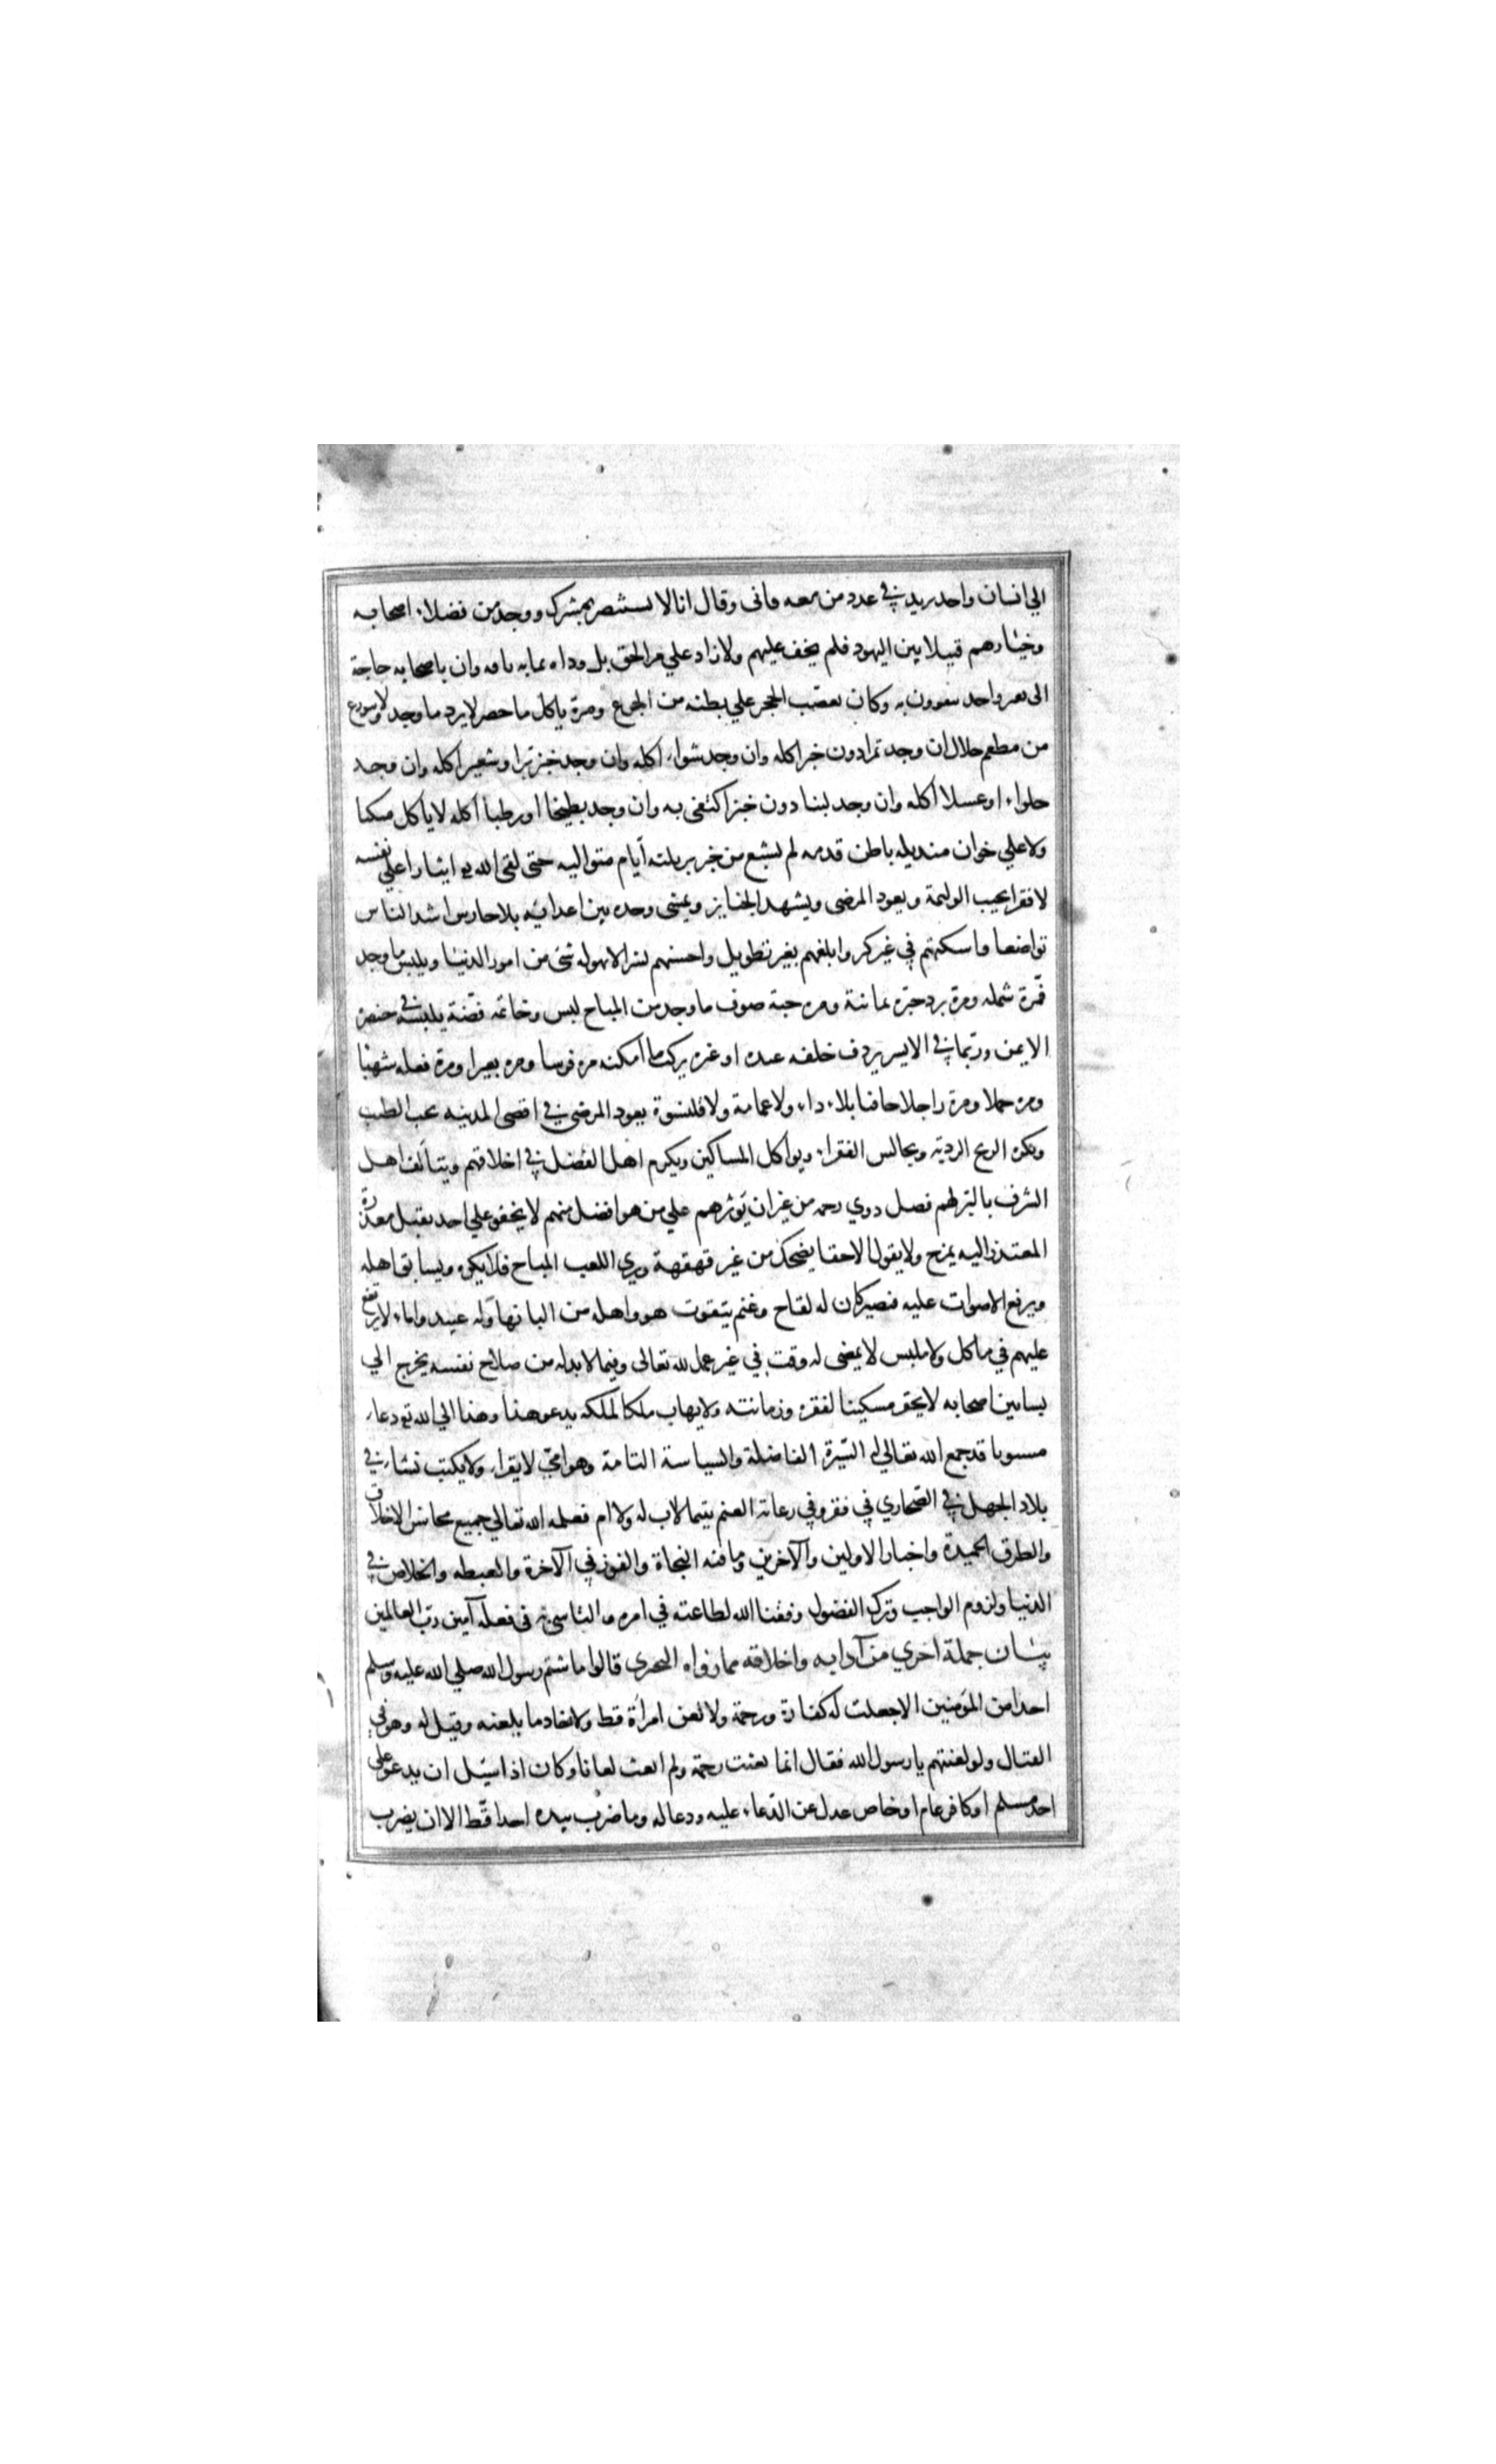 الي انسان واحد يزيد في عدد من معه فابى وقال انا لا استنصر بمشرك ووجد من فضلاء اصحابه
وخيارهم قتيلا بين اليهود فلم يحف عليهم ولا زاد علي مر الحق بل وداه بمايه ناقه وان باصحابه حاجة
الى بعير واحد يتقوون به وكان يعصب الحجر علي بطنه من الجوع ومرة ياكل ما حضر لا يرد ما وجد ولا يتورع
من مطعم حلال ان وجد تمرا دون خبز اكله وان وجد شواء اكله وان وجد خبز برا وشعير اكله وان وجد
حلواء او عسلا اكله وان وجد لبنا دون خبز اكتفى به وان وجد بطيخا او رطبا اكله لا ياكل متكئا
ولا علي خوان منديله باطن قدمه لم يشبع من خبز بر ثلثه أيام متواليه حتى لقى الله تع ايثارا علي نفسه
لا فقرا يجيب الوليمة ويعود المرضى ويشهد الجنايز ويمشى وحده بين اعدائه بلا حارس اشد الناس
تواضعا واسكنهم في غير كبر وابلغهم بغير تطويل واحسنهم بشرا لا يهوله شئ من امور الدنيا ويلبس ما وجد
فمرة شمله ومرة برد حبرة يمانية ومره جبة صوف ما وجد من المباح لبس وخاتمه فضة يلبسه في خنصره
الايمن وربما في الايسر يردف خلفه عبده او غيره يركب ما امكنه مره فرسا ومره بعيرا ومرة بغله شهبا
ومره حمارا ومرة راجلا حافيا بلا رداء ولا عمامة ولا قلنسوة يعود المرضى في اقصى المدينه يحب الطيب
ويكره الريح الرديه ويجالس الفقراء ويواكل المساكين ويكرم اهل الفضل في اخلاقهم ويتألف اهل
الشرف بالبر لهم فصل ذوي رحمه من غير ان يؤثرهم علي من هو افضل منهم لا يجفو علي احد يقبل معذرة
المعتذر اليه يمزح ولا يقول الا حقا يضحك من غير قهقهة ويري اللعب المباح فلا يكره ويسابق اهله
ويرفع الاصوات عليه فيصبر كان له لقاح وغنم يتقوت هو واهله من البانها وله عبيد واماء لا يرتفع
عليهم في ماكل ولا ملبس لا يمضى له وقت في غير عمل لله تعالى وفيما لا بد له من صلاح نفسه يخرج الي
بساتين اصحابه لا يحقر مسكينا لفقره وزمانته ولا يهاب ملكا لملكه يدعو هذا وهذا الي الله تع دعاء
مستويا قد جمع الله تعالي له السيرة الفاضلة والسياسة التامة وهو امي لا يقراء ولا يكتب نشاء في
بلاد الجهل في الصحاري في فقر وفي رعاية الغنم يتيما لا اب له ولا ام فعلمه الله تعالي جميع محاسن الاخلاق
والطرق الحميدة واخبار الاولين والآخرين وما فيه النجاة والفوز في الآخرة والغبطه والخلاص في
الدنيا ولزوم الواجب وترك الفضول وفقنا الله لطاعته في امره والتاسى به فى فعله آمين رب العالمين
بيان جملة اخري من آدابه واخلاقه مما رواه البحري قالوا ما شتم رسول الله صلي الله عليه وسلم
احدا من المؤمنين الا جعلت له كفارة ورحمة ولا لعن امرأة قط ولا خادما بلعنه وقيل له وهو في
القتال ولو لعنتهم يا رسول الله فقال انما بعثت رحمة ولم ابعث لعانا وكان اذا سئل ان يدعو علي
احد مسلم او كافر عام او خاص عدل عن الدعاء عليه ودعا له وما ضرب بيده احدا قط الا ان يضرب